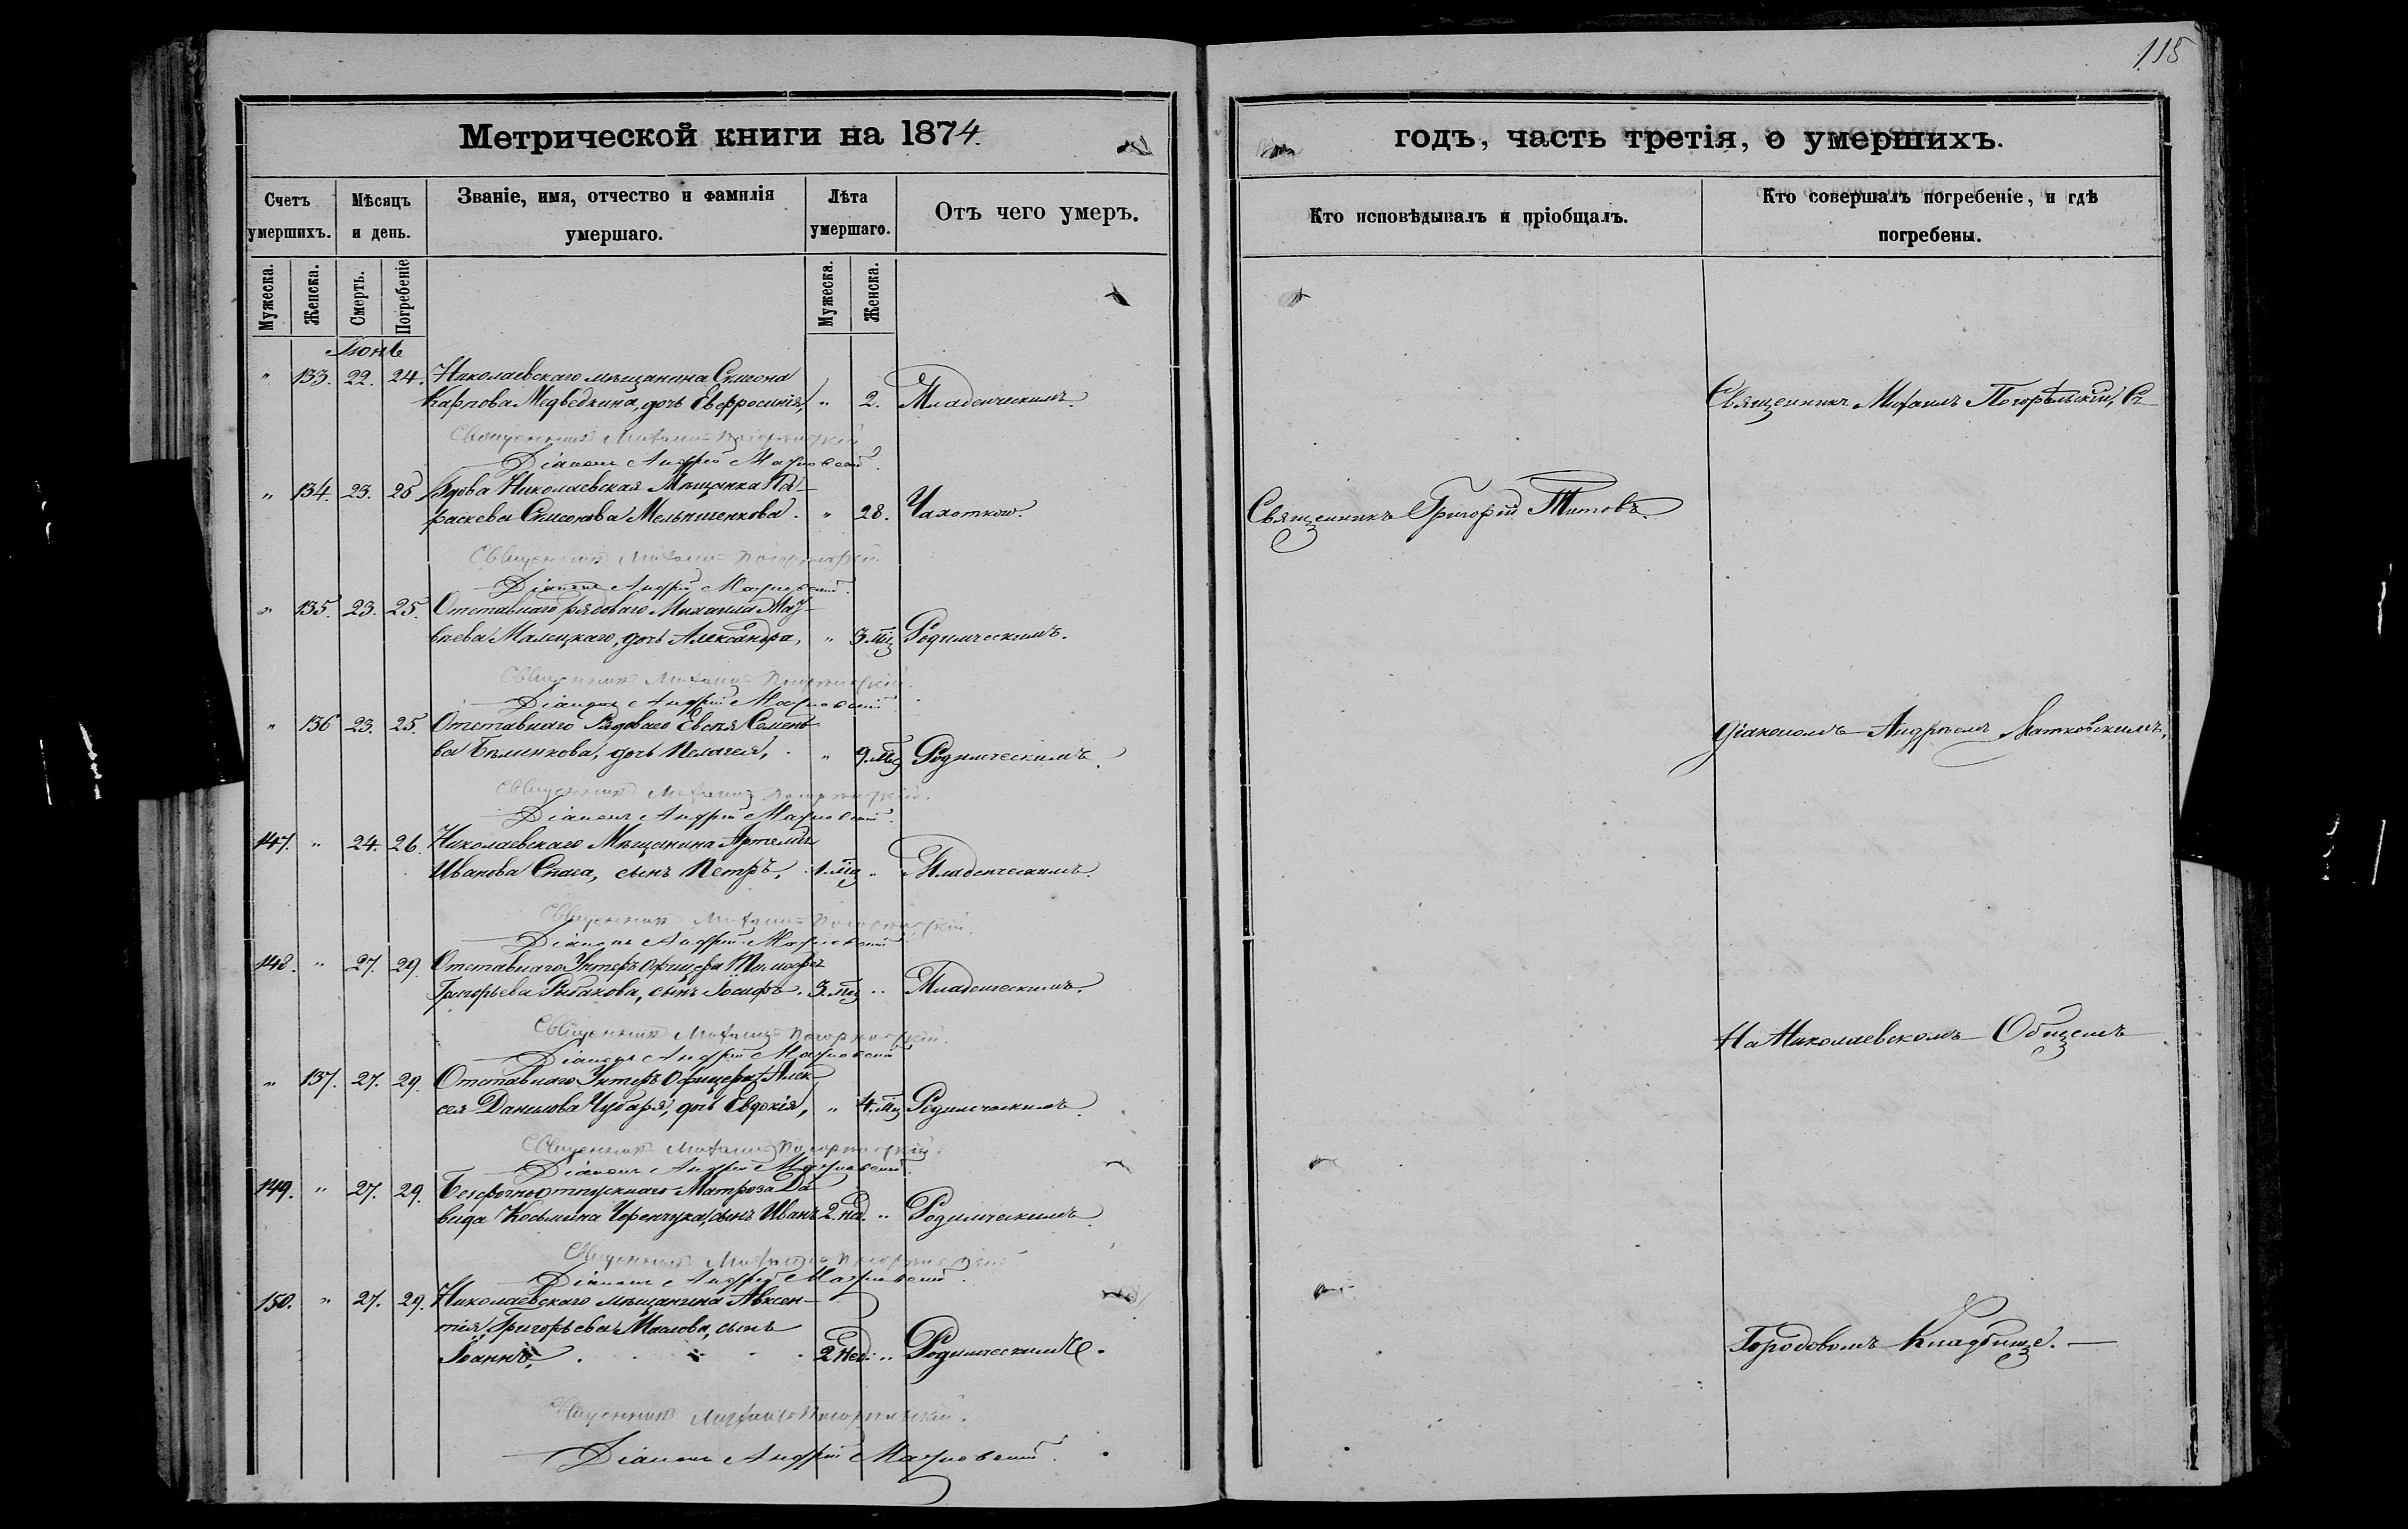 115
Метрической книги на 1874.
годъ, часть третія, о умершихъ.
Счетъ умершихъ.
Мѣсяцъ и день.
Званіе, имя, отчество и фамилія умершаго.
Лѣта умершаго.
Отъ чего умеръ.
Кто исповѣдывалъ и пріобщалъ.
Кто совершалъ погребеніе, и гдѣ погребены.
Мужеска.
Женска.
Смерть.
Погребеніе
Мужеска.
Женска.
Июнь
" 133. 22. 24. Николаевскаго мѣщанина Симеона
Карпова Медведкина, дочь Евфросинія, " 2. Младенческимъ.
Священникъ Михаилъ Погорѣльскій, Съ
Священникъ Михаилъ Погорѣльскій
Діаконъ Андрей Матковскій.
" 134. 23. 25 Вдова Николаевская Мѣщанка Па-
раскева Симеонова Мельниченкова. " 28. Чахоткою.
Священникъ Григорій Титовъ.
Священникъ Михаилъ Погорѣльскій
Діаконъ Андрей Матковскій.
" 135. 23. 25. Отставнаго рядоваго Михаила
Малецкаго, дочь Александра, " 3.мц Родимческимъ.
Священникъ Михаилъ Погорѣльскій.
Діаконъ Андрей Матковскій
" 136 23. 25. Отставнаго Рядоваго Евсея Семено-
ва Бѣлинкова, дочь Пелагея, " 9.мц Родимческимъ.
Діакономъ Андреемъ Матковскимъ,
Священникъ Михаилъ Погорѣльскій.
Діаконъ Андрей Матковскій.
147. " 24. 26. Николаевскаго Мѣщанина Артемія
Иванова сынъ Петръ, 1.мц " Младенческимъ.
Священникъ Михаилъ Погорѣльскій.
Діаконъ Андрей Матковскій.
148. " 27. 29. Отставнаго Унтеръ Офицера
Григорьева Рыбакова, сынъ Іосифъ. 3.мц " Младенческимъ.
Священникъ Михаилъ Погорѣльскій.
Діаконъ Андрей Матковскій
На Николаевскомъ Общемъ
" 137. 27. 29. Отставнаго Унтеръ Офицера Алек
сея Данилова Чубаря, дочь Евдокія, " 4.мц Родимческимъ.
Священникъ Михаилъ Погорѣльскій.
Діаконъ Андрей Матковскій.
149. " 27. 29. Безсрочноотпускнаго Матроза Да-
вида Косьмина Черенчука, сынъ Иванъ 2.нд. " Родимческимъ.
Священникъ Михаилъ Погорѣльскій
Діаконъ Андрей Матковскій.
150. " 27. 29. Николаевскаго мѣщанина Авксен-
тія Григорьева Маслова, сынъ
Іоаннъ, 2 нед. " Родимческимъ.
Городовомъ Кладбище.
Священникъ Михаилъ Погорѣльскій.
Діаконъ Андрей Матковскій.